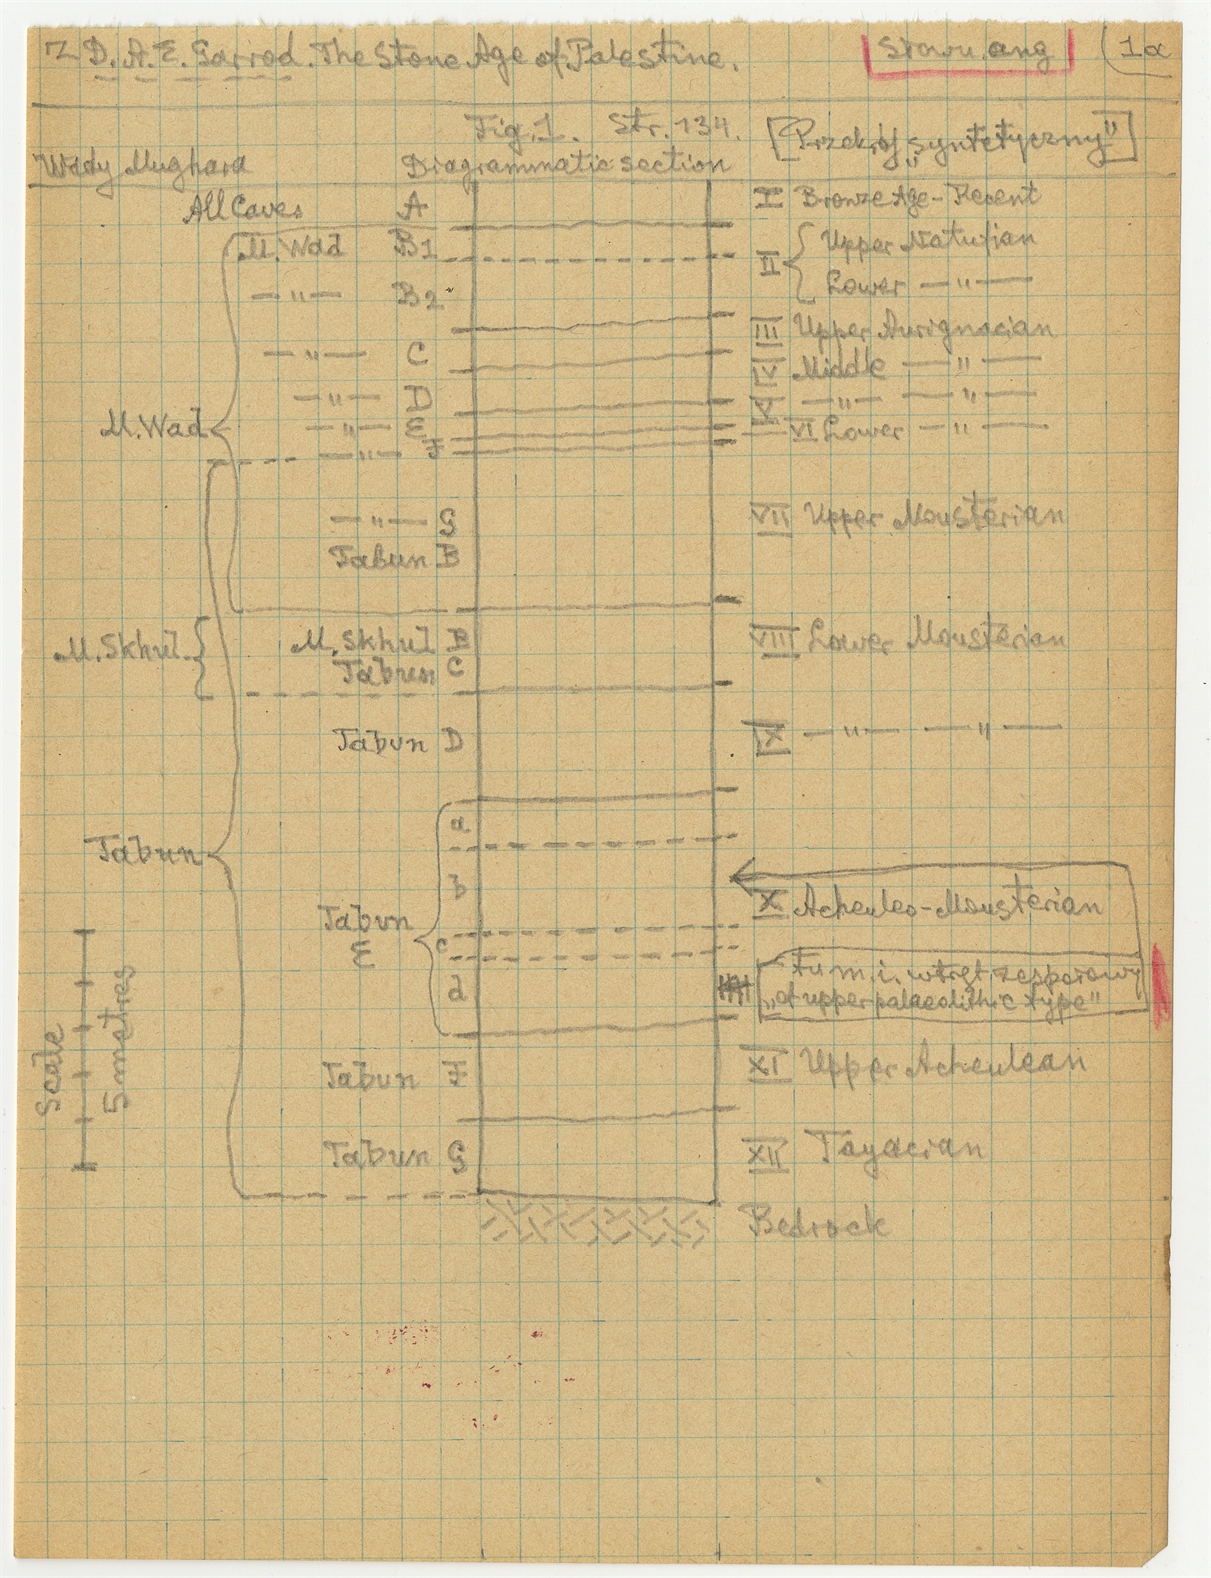 Z D. A. E. Garrod. The Stone Age of Palestine.
(1a
Fig. 1. Str. 134. [Przekrój „syntetyczny"]
Wady Mughara Diagrammatic section
All Caves A I Bronze Age - Recent
M. Wad B1 II { Upper Natufian
— " — B2 Lower — " —
III Upper Aurignacian
— " — C IV Middle — " —
— " — D V — " — — " —
M. Wad — " — E VI Lower — " —
— " — F
— " — G VII Upper Mousterian
Tabun B
M. Skhul M. Skhul B VIII Lower Mousterian
Tabun C
Tabun D IX — " — — " —
a
Tabun
b
X Acheuleo-Mousterian
Tabun
E c
tu m. i. wtręt zespołowy
d „of upper palaeolithic type"
Scale 5 metres
Tabun F XI Upper Acheulean
Tabun G XII Tayacian
Bedrock